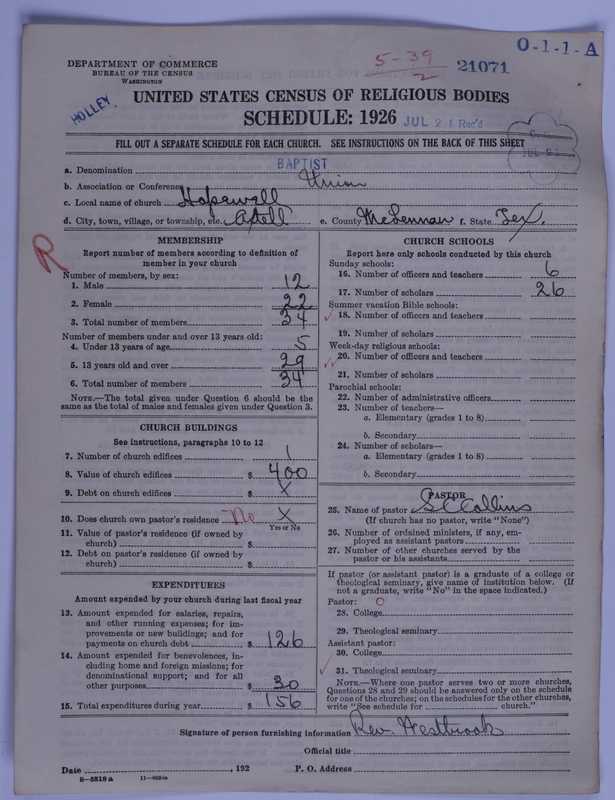 O-1-1-A
DEPARTMENT OF COMMERCE
BUREAU OF THE CENSUS
WASHINGTON
5-39
2
21071
HOLLEY
UNITED STATES CENSUS OF RELIGIOUS BODIES
SCHEDULE: 1926
JUL 21 Rec'd
FILL OUT A SEPARATE SCHEDULE FOR EACH CHURCH. SEE INSTRUCTIONS ON THE BACK OF THIS SHEET
a. Denomination BAPTIST
b. Association or Conference Union
c. Local name of church Hopewell
d. City, town, village, or township, etc. Axtell e. County McLennan f. State Tex.
R
MEMBERSHIP
Report number of members according to definition of
member in your church
Number of members, by sex:
1. Male 12
2. Female 22
3. Total number of members 34
Number of members under and over 13 years old:
4. Under 13 years of age 5
5. 13 years old and over 29
6. Total number of members 34
NOTE.—The total given under Question 6 should be the
same as the total of males and females given under Question 3.
CHURCH BUILDINGS
See instructions, paragraphs 10 to 12
7. Number of church edifices 1
8. Value of church edifices $ 400
9. Debt on church edifices $ X
10. Does church own pastor's residence No X
Yes or No
11. Value of pastor's residence (if owned by
church) $
12. Debt on pastor's residence (if owned by
church) $
EXPENDITURES
Amount expended by your church during last fiscal year
13. Amount expended for salaries, repairs,
and other running expenses; for im-
provements or new buildings; and for
payments on church debt $ 126
14. Amount expended for benevolences, in-
cluding home and foreign missions; for
denominational support; and for all
other purposes $ 30
15. Total expenditures during year $ 156
CHURCH SCHOOLS
Report here only schools conducted by this church
Sunday schools:
16. Number of officers and teachers 6
17. Number of scholars 26
Summer vacation Bible schools:
18. Number of officers and teachers
19. Number of scholars
Week-day religious schools:
20. Number of officers and teachers
21. Number of scholars
Parochial schools:
22. Number of administrative officers
23. Number of teachers—
a. Elementary (grades 1 to 8)
b. Secondary
24. Number of scholars—
a. Elementary (grades 1 to 8)
b. Secondary
PASTOR
25. Name of pastor S C Collins
(If church has no pastor, write "None")
26. Number of ordained ministers, if any, em-
ployed as assistant pastors
27. Number of other churches served by the
pastor or his assistants
If pastor (or assistant pastor) is a graduate of a college or
theological seminary, give name of institution below. (If
not a graduate, write "No" in the space indicated.)
Pastor: O
28. College
29. Theological seminary
Assistant pastor:
30. College
31. Theological seminary
NOTE.—Where one pastor serves two or more churches,
Questions 28 and 29 should be answered only on the schedule
for one of the churches; on the schedules for the other churches,
write "See schedule for church."
Signature of person furnishing information Rev. Westbrook
Official title
Date , 192 P. O. Address
8-5518a 11-9034a